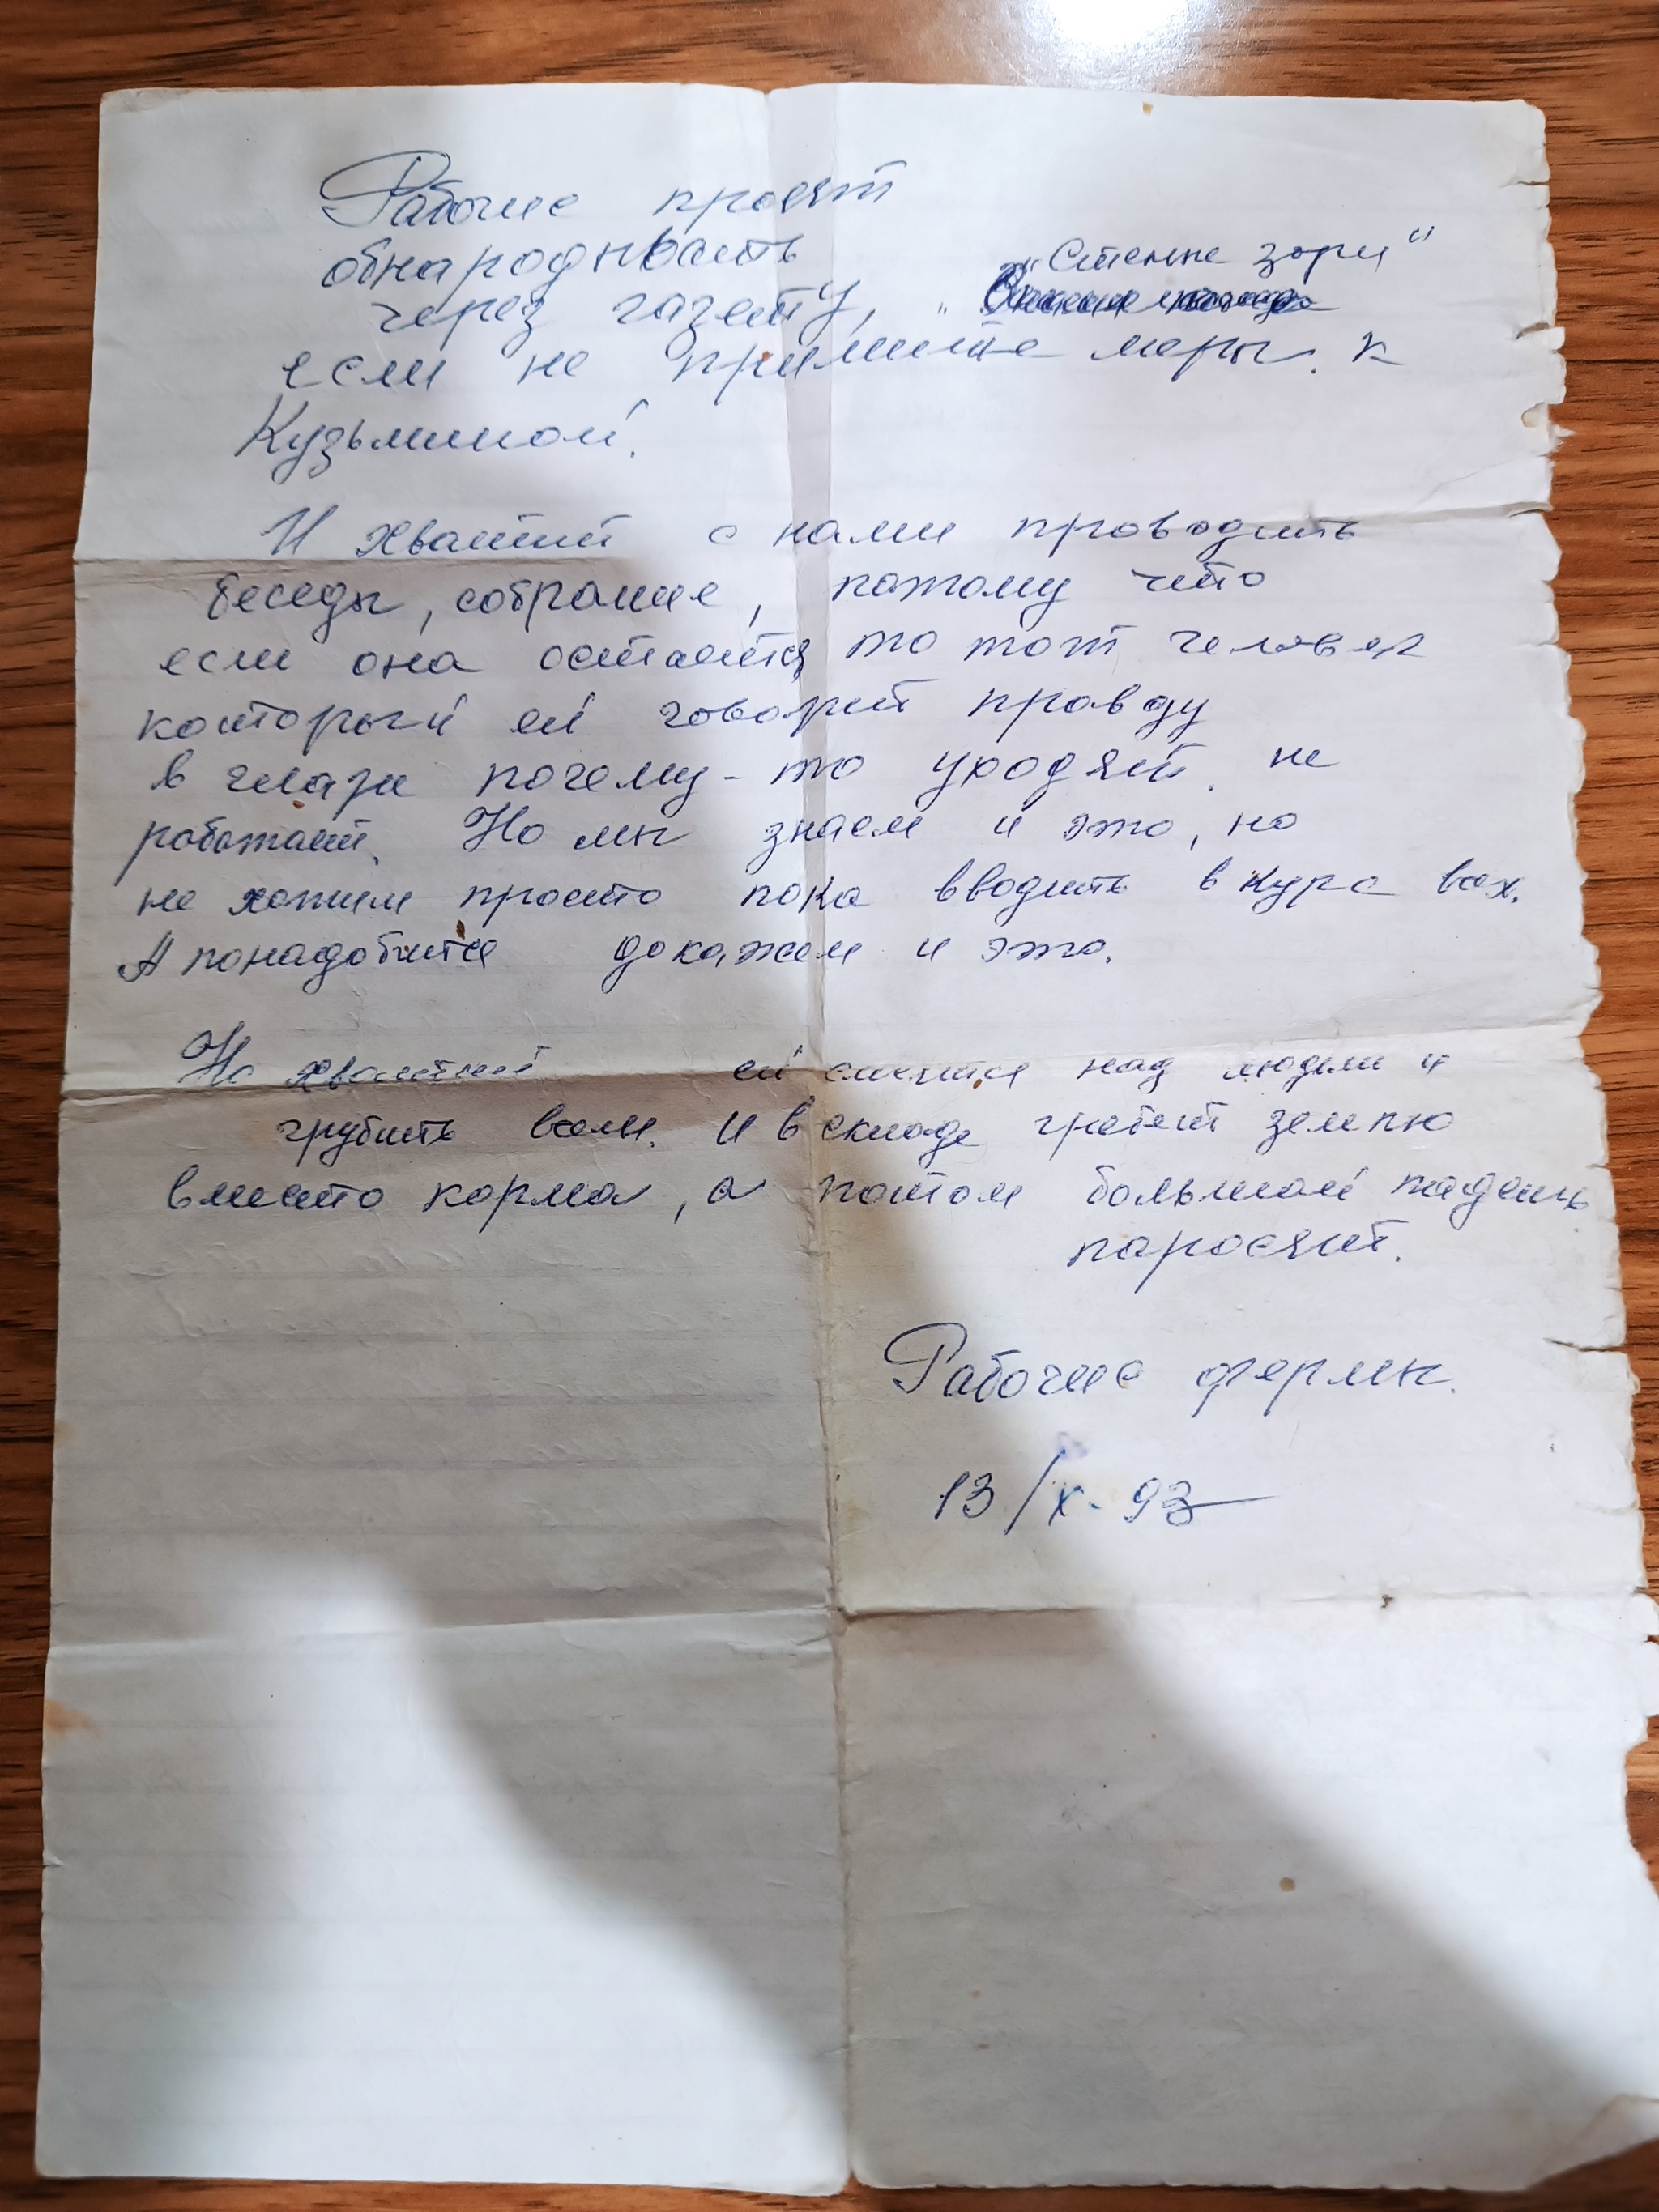 Рабочие просят
обнародновать
через газету, „Степные зори"
если не примите меры. к
Кузьминой.
И хватит с нами проводить
беседы, собрание, потому что
если она остаётся то тот человек
который ей говорит правду
в глазы почему-то уходят. не
работает. Но мы знаем и это, но
не хотим просто пока вводить в курс всех.
А понадобится докажем и это.
Но хватит ей смеятся над людьми и
грубить всем. и в складе гребет землю
вместо корма, а потом большой падешь
поросят.
Рабочие фермы.
13/X-93